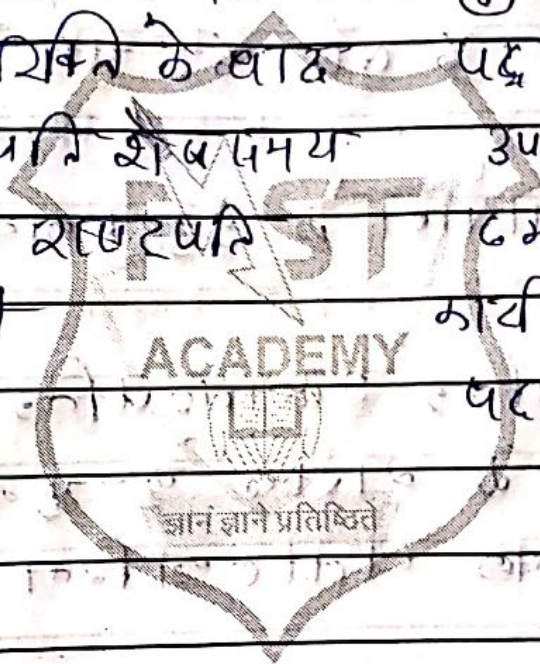 रिक्ति के बाद पद
पति शेष समय उप
राष्ट्रपति
कार्य
FAST
ACADEMY
पद
ज्ञानं ज्ञाने प्रतिष्ठितं